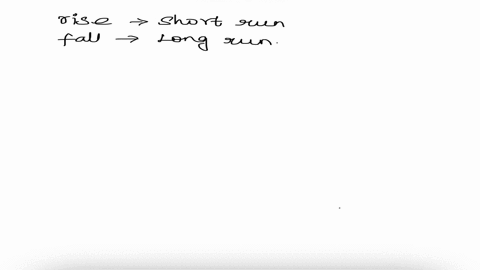 rise → short run
fall → Long run.